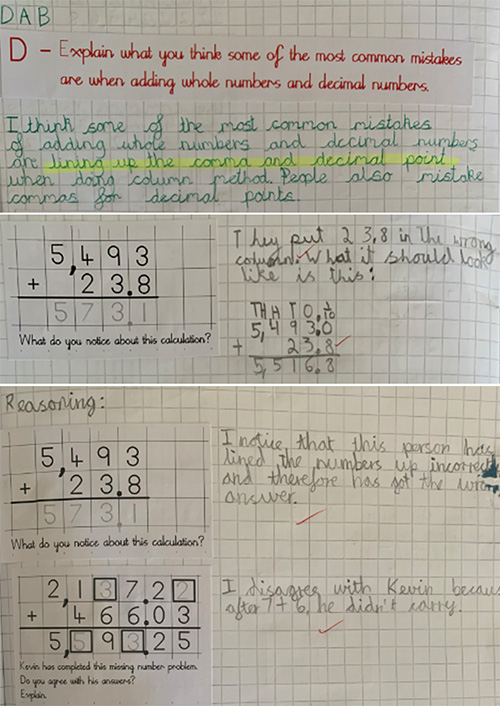 DAB
D - Explain what you think some of the most common mistakes
are when adding whole numbers and decimal numbers.
I think some of the most common mistakes
of adding whole numbers and decimal numbers
are lining up the comma and decimal point
when doing column method. People also mistake
commas for decimal points.
5,493
+ 23.8
573.1
What do you notice about this calculation?
They put 23.8 in the wrong
column. What it should look
like is this:
TH H T O . 1/10
5,493.0
+ 23.8
5,516.8
Reasoning:
5,493
+ 23.8
573.1
What do you notice about this calculation?
I notice that this person has
lined the numbers up incorrect
and therefore has got the wrong
answer.
2,137.22
+ 466.03
5,593.25
Kevin has completed this missing number problem.
Do you agree with his answers?
Explain.
I disagree with Kevin becau
after 7+6, he didn't carry.